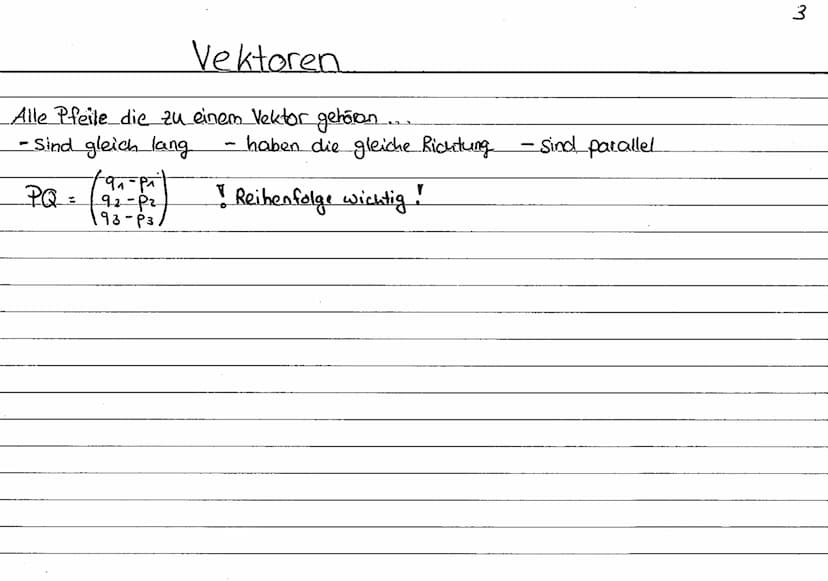 3
Vektoren
Alle Pfeile die zu einem Vektor gehören...
- Sind gleich lang - haben die gleiche Richtung - sind parallel
PQ = (q1-p1
q2-p2
q3-p3) ! Reihenfolge wichtig!